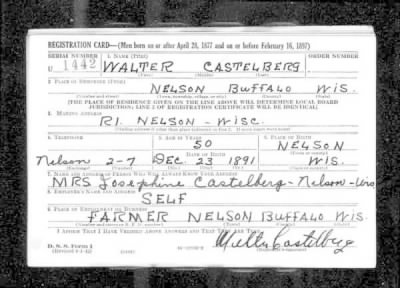 REGISTRATION CARD—(Men born on or after April 28, 1877 and on or before February 16, 1897)
SERIAL NUMBER 1. NAME (Print) ORDER NUMBER
U 1442 WALTER CASTELBERG
(First) (Middle) (Last)
2. PLACE OF RESIDENCE (Print)
NELSON BUFFALO WIS.
(Number and street) (Town, township, village, or city) (County) (State)
[THE PLACE OF RESIDENCE GIVEN ON THE LINE ABOVE WILL DETERMINE LOCAL BOARD
JURISDICTION; LINE 2 OF REGISTRATION CERTIFICATE WILL BE IDENTICAL]
3. MAILING ADDRESS
R1. NELSON - WISC.
[Mailing address if other than place indicated on line 2. If same insert word same]
4. TELEPHONE 5. AGE IN YEARS 6. PLACE OF BIRTH
50 NELSON
DATE OF BIRTH (Town or county)
Nelson 2-7 DEC. 23 1891 WIS.
(Exchange) (Number) (Mo.) (Day) (Yr.) (State or country)
7. NAME AND ADDRESS OF PERSON WHO WILL ALWAYS KNOW YOUR ADDRESS
MRS Josephine Castelberg - Nelson - Wis
8. EMPLOYER'S NAME AND ADDRESS
SELF
9. PLACE OF EMPLOYMENT OR BUSINESS
FARMER NELSON BUFFALO WIS.
(Number and street or R. F. D. number) (Town) (County) (State)
I AFFIRM THAT I HAVE VERIFIED ABOVE ANSWERS AND THAT THEY ARE TRUE.
D. S. S. Form 1
(Revised 4-1-42) (over)